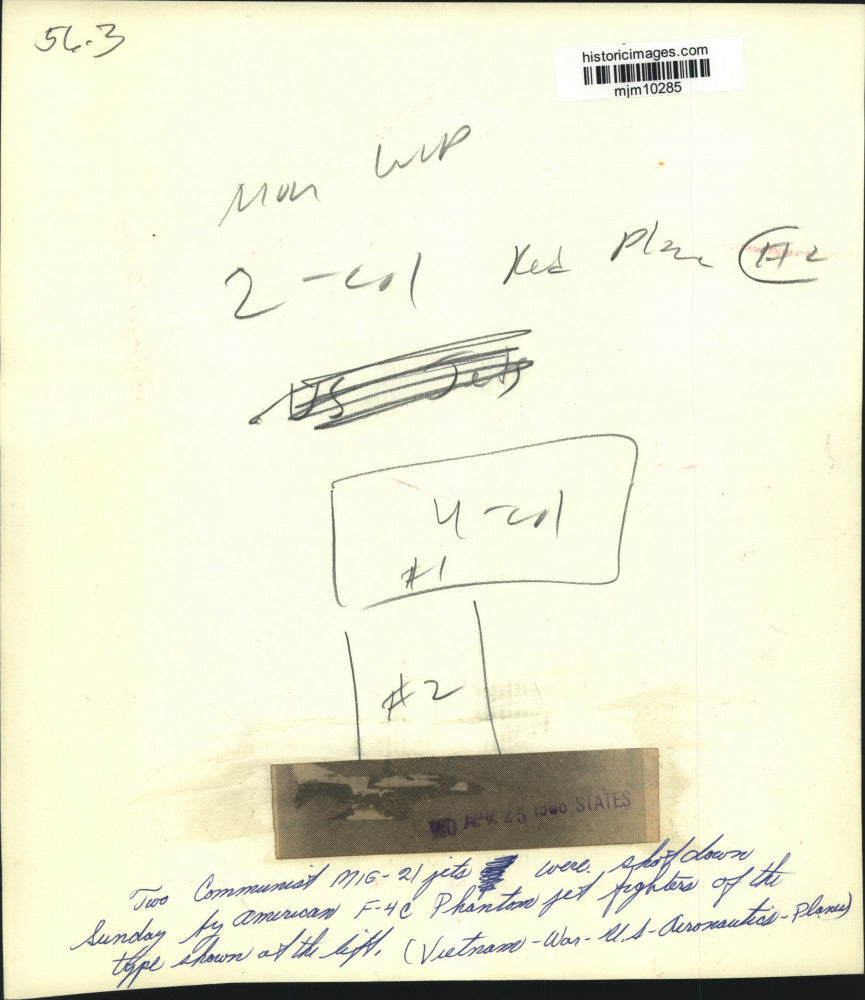 56.3
historicimages.com
mjm10285
Mon
2-col Red Plane #2
US Jets
4-col
#1
#2
APR 25 1966 STATES
Two Communist MIG-21 jets were shot down
Sunday by American F-4C Phantom jet fighters of the
type shown at the left. (Vietnam-War-U.S-Aeronautics-Planes)